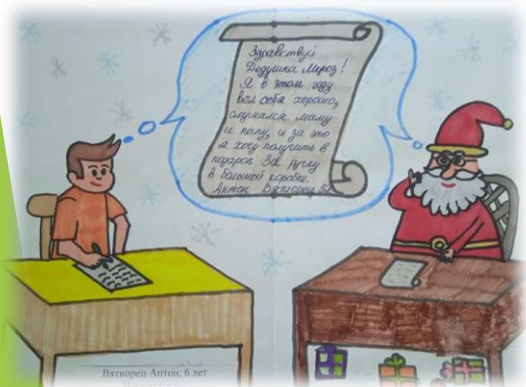 Здравствуй
Дедушка Мороз!
Я в этом году
вел себя хорошо,
слушался маму
и папу, и за это
я хочу получить в
подарок 3D ручку
в большой коробке.
Антон Вятиорец 6л
Вятиорец Антон, 6 лет